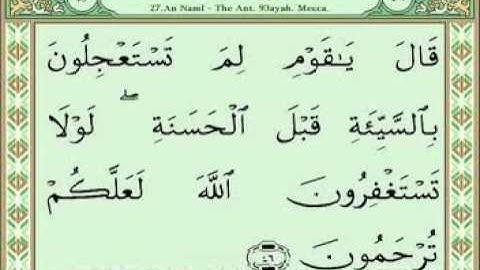 27.An Naml - The Ant. 93ayah. Mecca.
قَالَ يَـٰقَوْمِ لِمَ تَسْتَعْجِلُونَ
بِالسَّيِّئَةِ قَبْلَ الْحَسَنَةِ ۖ لَوْلَا
تَسْتَغْفِرُونَ اللَّهَ لَعَلَّكُمْ
تُرْحَمُونَ ٤٦